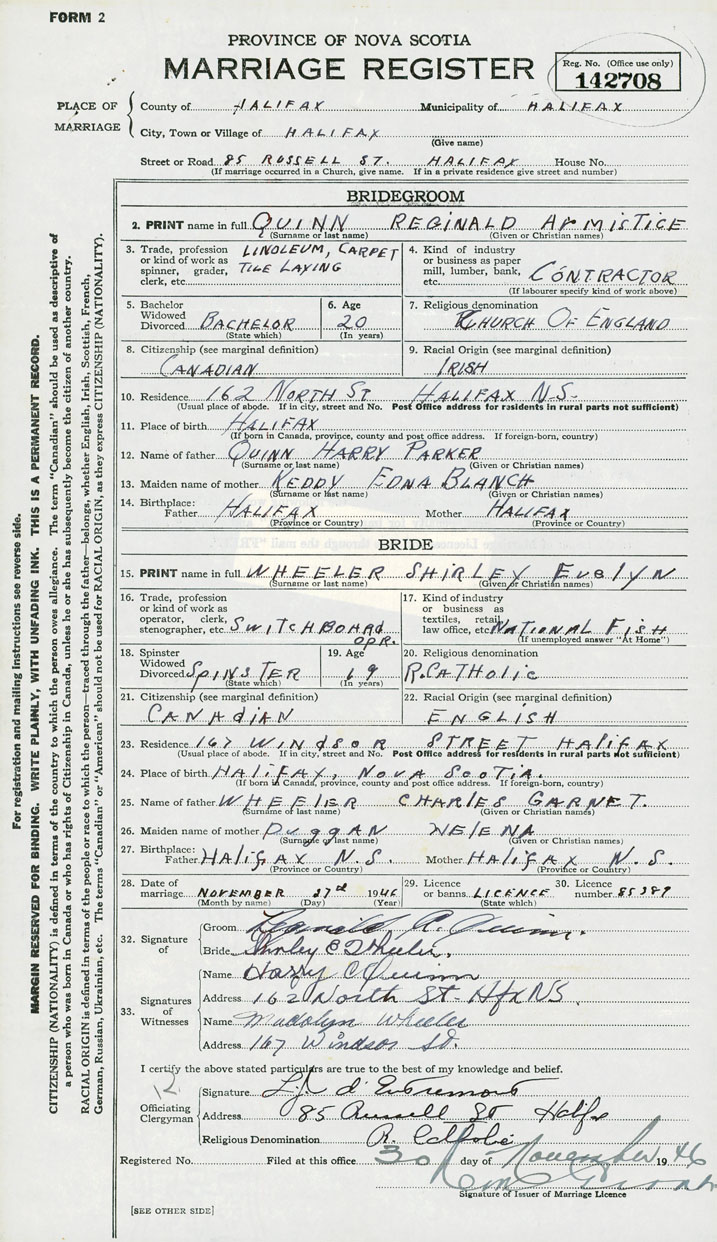 FORM 2
PROVINCE OF NOVA SCOTIA
MARRIAGE REGISTER
Reg. No. (Office use only)
142708
PLACE OF MARRIAGE
County of HALIFAX Municipality of HALIFAX
City, Town or Village of HALIFAX
(Give name)
Street or Road 85 RUSSELL ST. HALIFAX House No.
(If marriage occurred in a Church, give name. If in a private residence give street and number)
BRIDEGROOM
2. PRINT name in full QUINN REGINALD ARMISTICE
(Surname or last name) (Given or Christian names)
3. Trade, profession or kind of work as spinner, grader, clerk, etc. LINOLEUM, CARPET TILE LAYING
4. Kind of industry or business as paper mill, lumber, bank, etc. CONTRACTOR
(If labourer specify kind of work above)
5. Bachelor Widowed Divorced BACHELOR
(State which)
6. Age 20
(In years)
7. Religious denomination CHURCH OF ENGLAND
8. Citizenship (see marginal definition) CANADIAN
9. Racial Origin (see marginal definition) IRISH
10. Residence 162 NORTH ST HALIFAX N.S.
(Usual place of abode. If in city, street and No. Post Office address for residents in rural parts not sufficient)
11. Place of birth HALIFAX
(If born in Canada, province, county and post office address. If foreign-born, country)
12. Name of father QUINN HARRY PARKER
(Surname or last name) (Given or Christian names)
13. Maiden name of mother KEDDY EDNA BLANCH
(Surname or last name) (Given or Christian names)
14. Birthplace: Father HALIFAX Mother HALIFAX
(Province or Country) (Province or Country)
BRIDE
15. PRINT name in full WHEELER SHIRLEY EVELYN
(Surname or last name) (Given or Christian names)
16. Trade, profession or kind of work as operator, clerk, stenographer, etc. SWITCHBOARD OPR.
17. Kind of industry or business as textiles, retail, law office, etc. NATIONAL FISH
(If unemployed answer "At Home")
18. Spinster Widowed Divorced SPINSTER
(State which)
19. Age 19
(In years)
20. Religious denomination R. CATHOLIC
21. Citizenship (see marginal definition) CANADIAN
22. Racial Origin (see marginal definition) ENGLISH
23. Residence 167 WINDSOR STREET HALIFAX
(Usual place of abode. If in city, street and No. Post Office address for residents in rural parts not sufficient)
24. Place of birth HALIFAX, NOVA SCOTIA.
(If born in Canada, province, county and post office address. If foreign-born, country)
25. Name of father WHEELER CHARLES GARNET.
(Surname or last name) (Given or Christian names)
26. Maiden name of mother DUGGAN HELENA
(Surname or last name) (Given or Christian names)
27. Birthplace: Father HALIFAX N.S. Mother HALIFAX N.S.
(Province or Country) (Province or Country)
28. Date of marriage NOVEMBER 27th 1946
(Month by name) (Day) (Year)
29. Licence or banns LICENCE
(State which)
30. Licence number 85389
32. Signature of
Groom Reginald A. Quinn.
Bride Shirley E Wheeler.
33. Signatures of Witnesses
Name Harry C Quinn
Address 162 North St- Hfx NS.
Name Madolyn Wheeler
Address 167 Windsor St.
I certify the above stated particulars are true to the best of my knowledge and belief.
12
Officiating Clergyman
Signature d'Entremont
Address 85 Russell St Halifx
Religious Denomination R. Catholic
Registered No. Filed at this office 30 day of November 1946
Signature of Issuer of Marriage Licence
[SEE OTHER SIDE]
For registration and mailing instructions see reverse side.
MARGIN RESERVED FOR BINDING. WRITE PLAINLY, WITH UNFADING INK. THIS IS A PERMANENT RECORD.
CITIZENSHIP (NATIONALITY) is defined in terms of the country to which the person owes allegiance. The term "Canadian" should be used as descriptive of
a person who was born in Canada or who has rights of Citizenship in Canada, unless he or she has subsequently become the citizen of another country.
RACIAL ORIGIN is defined in terms of the people or race to which the person—traced through the father—belongs, whether English, Irish, Scottish, French,
German, Russian, Ukrainian, etc. The terms "Canadian" or "American" should not be used for RACIAL ORIGIN, as they express CITIZENSHIP (NATIONALITY).